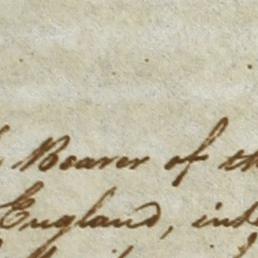 Bearer of th
England, int